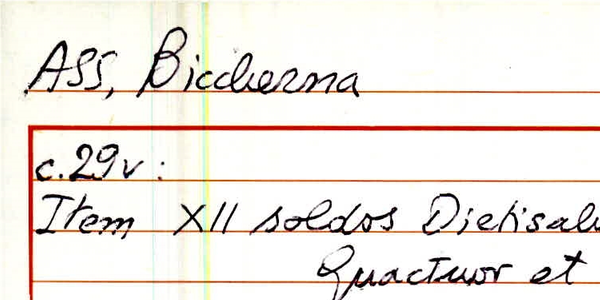 ASS, Biccherna
c. 29v:
Item XII soldos Dietisalv
Quactuor et